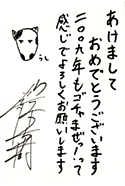 あけまして
おめでとうございます
二〇〇九年もゴチャまぜっ!って
感じでよろしくお願いします
うし